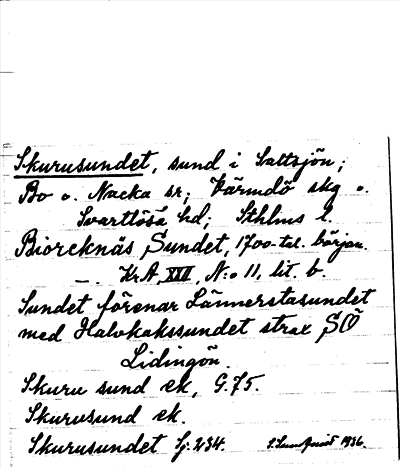 Skurusundet, sund i Saltsjön;
Bo o. Nacka sr; Värmdö skg o.
Svartlösa hd; Sthlms l.
Biorcknäs Sundet, 1700-tal. början.
—. KrA, XVII, N:o 11, lit. b.
Sundet förenar Lännerstasundet
med Halvkakssundet strax SÖ
Lidingön.
Skuru sund ek, G.75.
Skurusund ek.
Skurusundet Sj. 234. 1936.